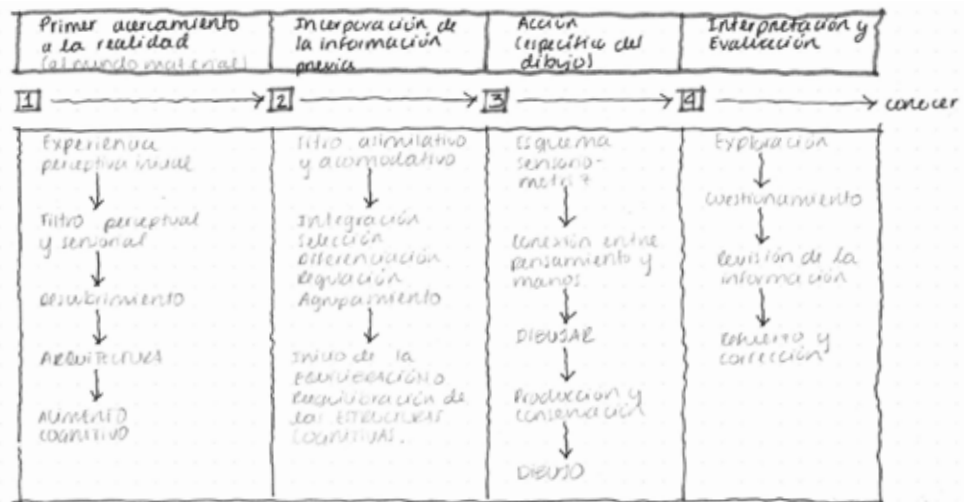 Primer acercamiento
a la realidad
(al mundo material)
Incorporación de
la información
previa
Acción
(específica del
dibujo)
Interpretación y
Evaluación
1
2
3
4
conocer
Experiencia
perceptiva inicial
Filtro perceptual
y sensorial
Descubrimiento
ARQUITECTURA
ALIMENTO
COGNITIVO
Filtro asimilativo
y acomodativo
Integración
Selección
Diferenciación
Regulación
Agrupamiento
Inicio de la
EQUILIBRACIÓN O
Reequilibración de
las ESTRUCTURAS
COGNITIVAS.
Esquema
sensorio-
motriz
Conexión entre
pensamiento y
manos.
DIBUJAR
Producción y
conservación
DIBUJO
Exploración
Cuestionamiento
Revisión de la
información
Refuerzo y
corrección